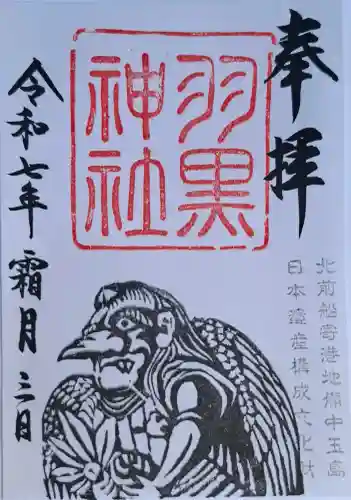 奉拝
羽黒
神社
北前船寄港地備中玉島
日本遺産構成文化財
令和七年 霜月 三日